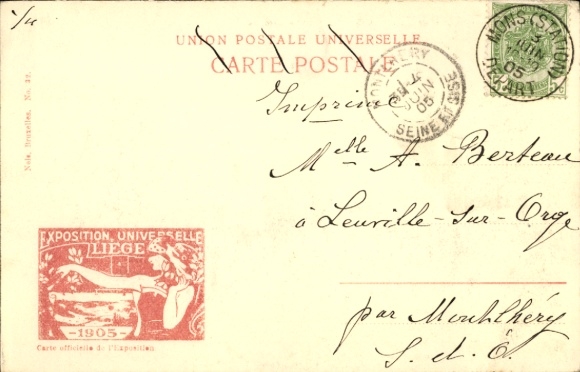 UNION POSTALE UNIVERSELLE
CARTE POSTALE
MONS (STATION)
3
JUIN
05
DEPART
MONTLHERY
4
JUIN
05
SEINE ET OISE
Imprimé
Melle A. Berteau
à Leuville-sur-Orge
par Montlhéry
S.-et-O.
Nels, Bruxelles.
EXPOSITION UNIVERSELLE
LIEGE
-1905-
Carte officielle de l'Exposition.